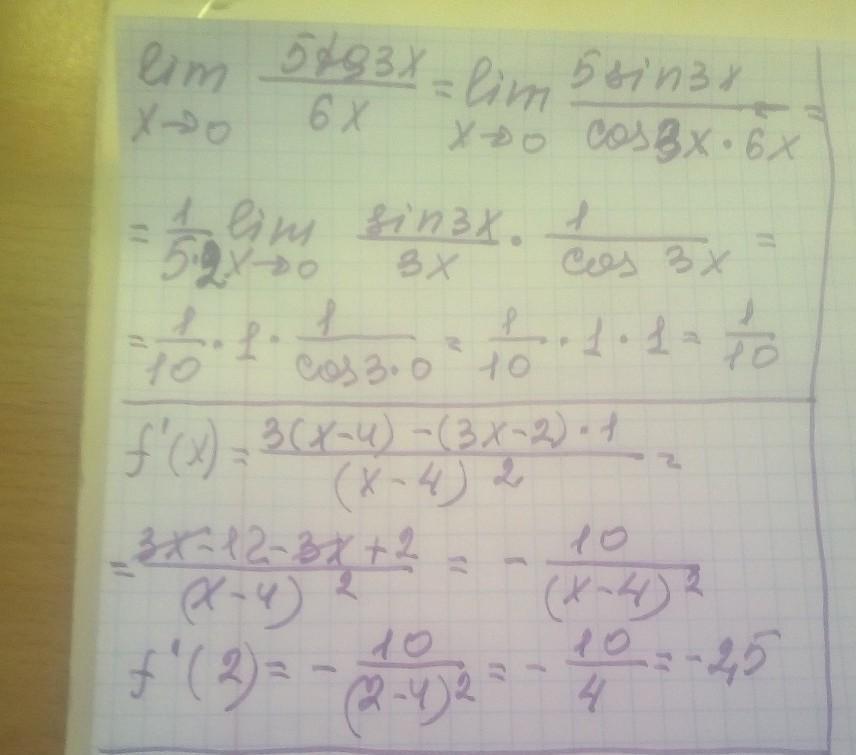 lim x→0 5tg3x/6x = lim x→0 5sin3x/cos3x·6x =
= 1/5·2 lim x→0 sin3x/3x · 1/cos 3x =
= 1/10 · 1 · 1/cos3·0 = 1/10 · 1 · 1 = 1/10
f'(x) = 3(x-4) - (3x-2)·1/(x-4)² =
= 3x-12-3x+2/(x-4)² = - 10/(x-4)²
f'(2) = - 10/(2-4)² = - 10/4 = -2,5